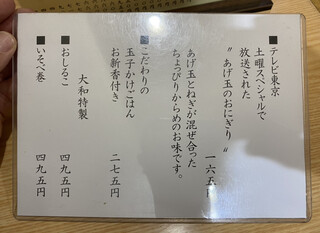 ■テレビ東京
土曜スペシャルで
放送された
〝あげ玉のおにぎり〟
一六五円
あげ玉とねぎが混ぜ合った
ちょっぴりからめのお味です。
■こだわりの
玉子かけごはん
お新香付き
二七五円
大和特製
■おしるこ
四九五円
■いそべ巻
四九五円